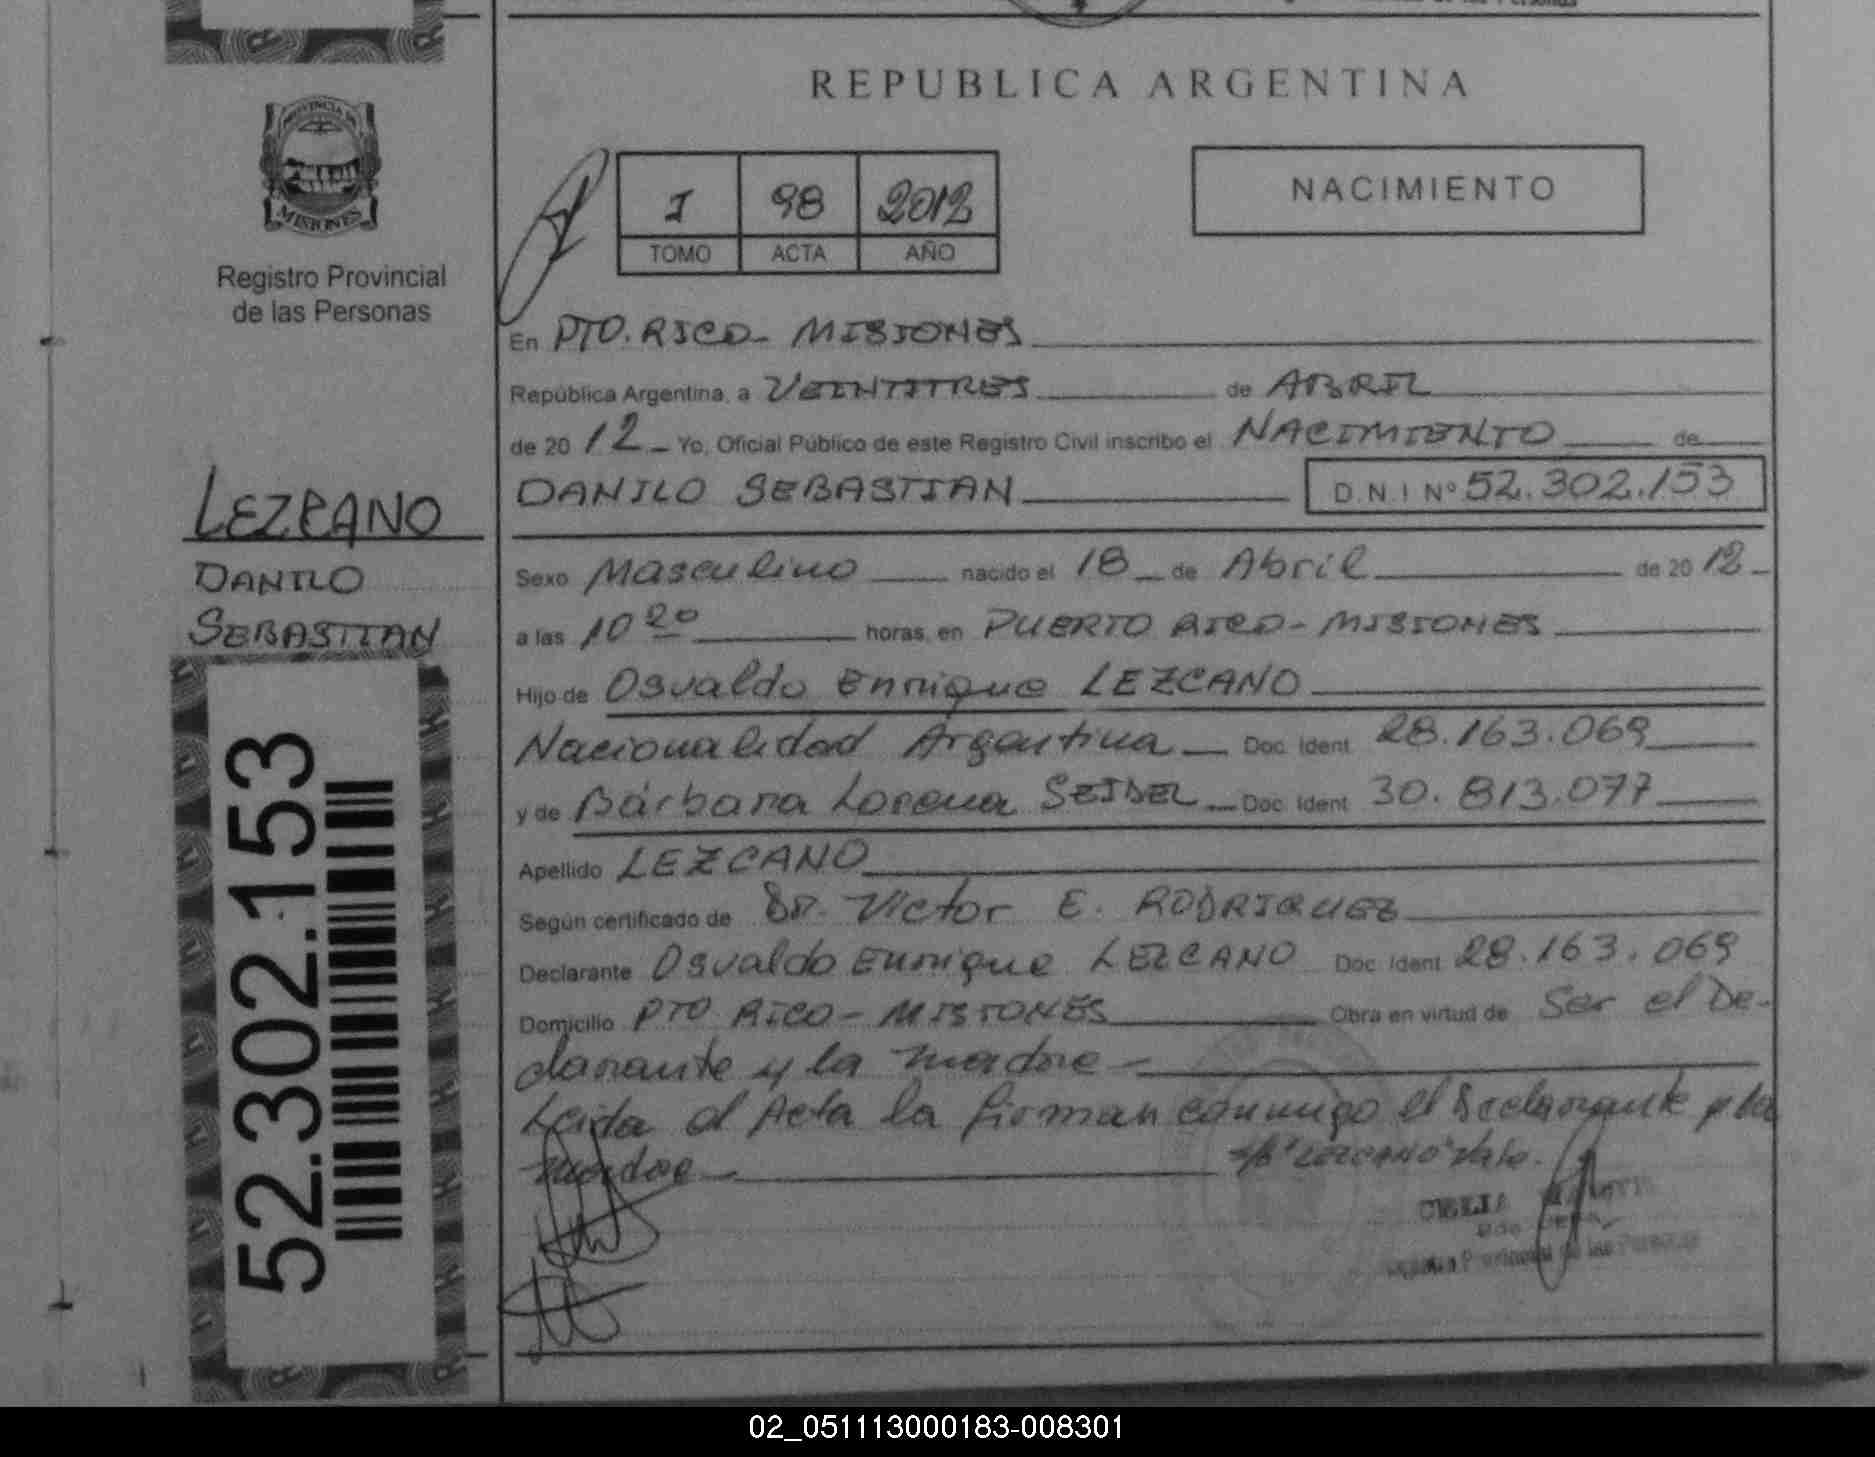 REPUBLICA ARGENTINA
PROVINCIA DE
MISIONES
Registro Provincial
de las Personas
I 98 2012
TOMO ACTA AÑO
NACIMIENTO
En PTO. RICO - MISIONES
República Argentina, a VEINTITRES de ABRIL
de 20 12 - Yo, Oficial Público de este Registro Civil inscribo el NACIMIENTO de
DANILO SEBASTIAN D.N.I Nº 52.302.153
LEZCANO
DANILO
SEBASTIAN
52.302.153
Sexo Masculino nacido el 18 de Abril de 20 12
a las 10 20 horas, en PUERTO RICO - MISIONES
Hijo de Osvaldo Enrique LEZCANO
Nacionalidad Argentina Doc. Ident. 28.163.069
y de Bárbara Lorena SEIDEL Doc. Ident. 30.813.077
Apellido LEZCANO
Según certificado de Dr. Victor E. RODRIGUEZ
Declarante Osvaldo Enrique LEZCANO Doc. Ident. 28.163.069
Domicilio PTO RICO - MISIONES Obra en virtud de Ser el De-
clarante y la madre -
Leida el Acta la firman conmigo el Declarante y la
madre s/b "LEZCANO" Vale.
CELIA
Registro Provincial de las Personas
02_051113000183-008301